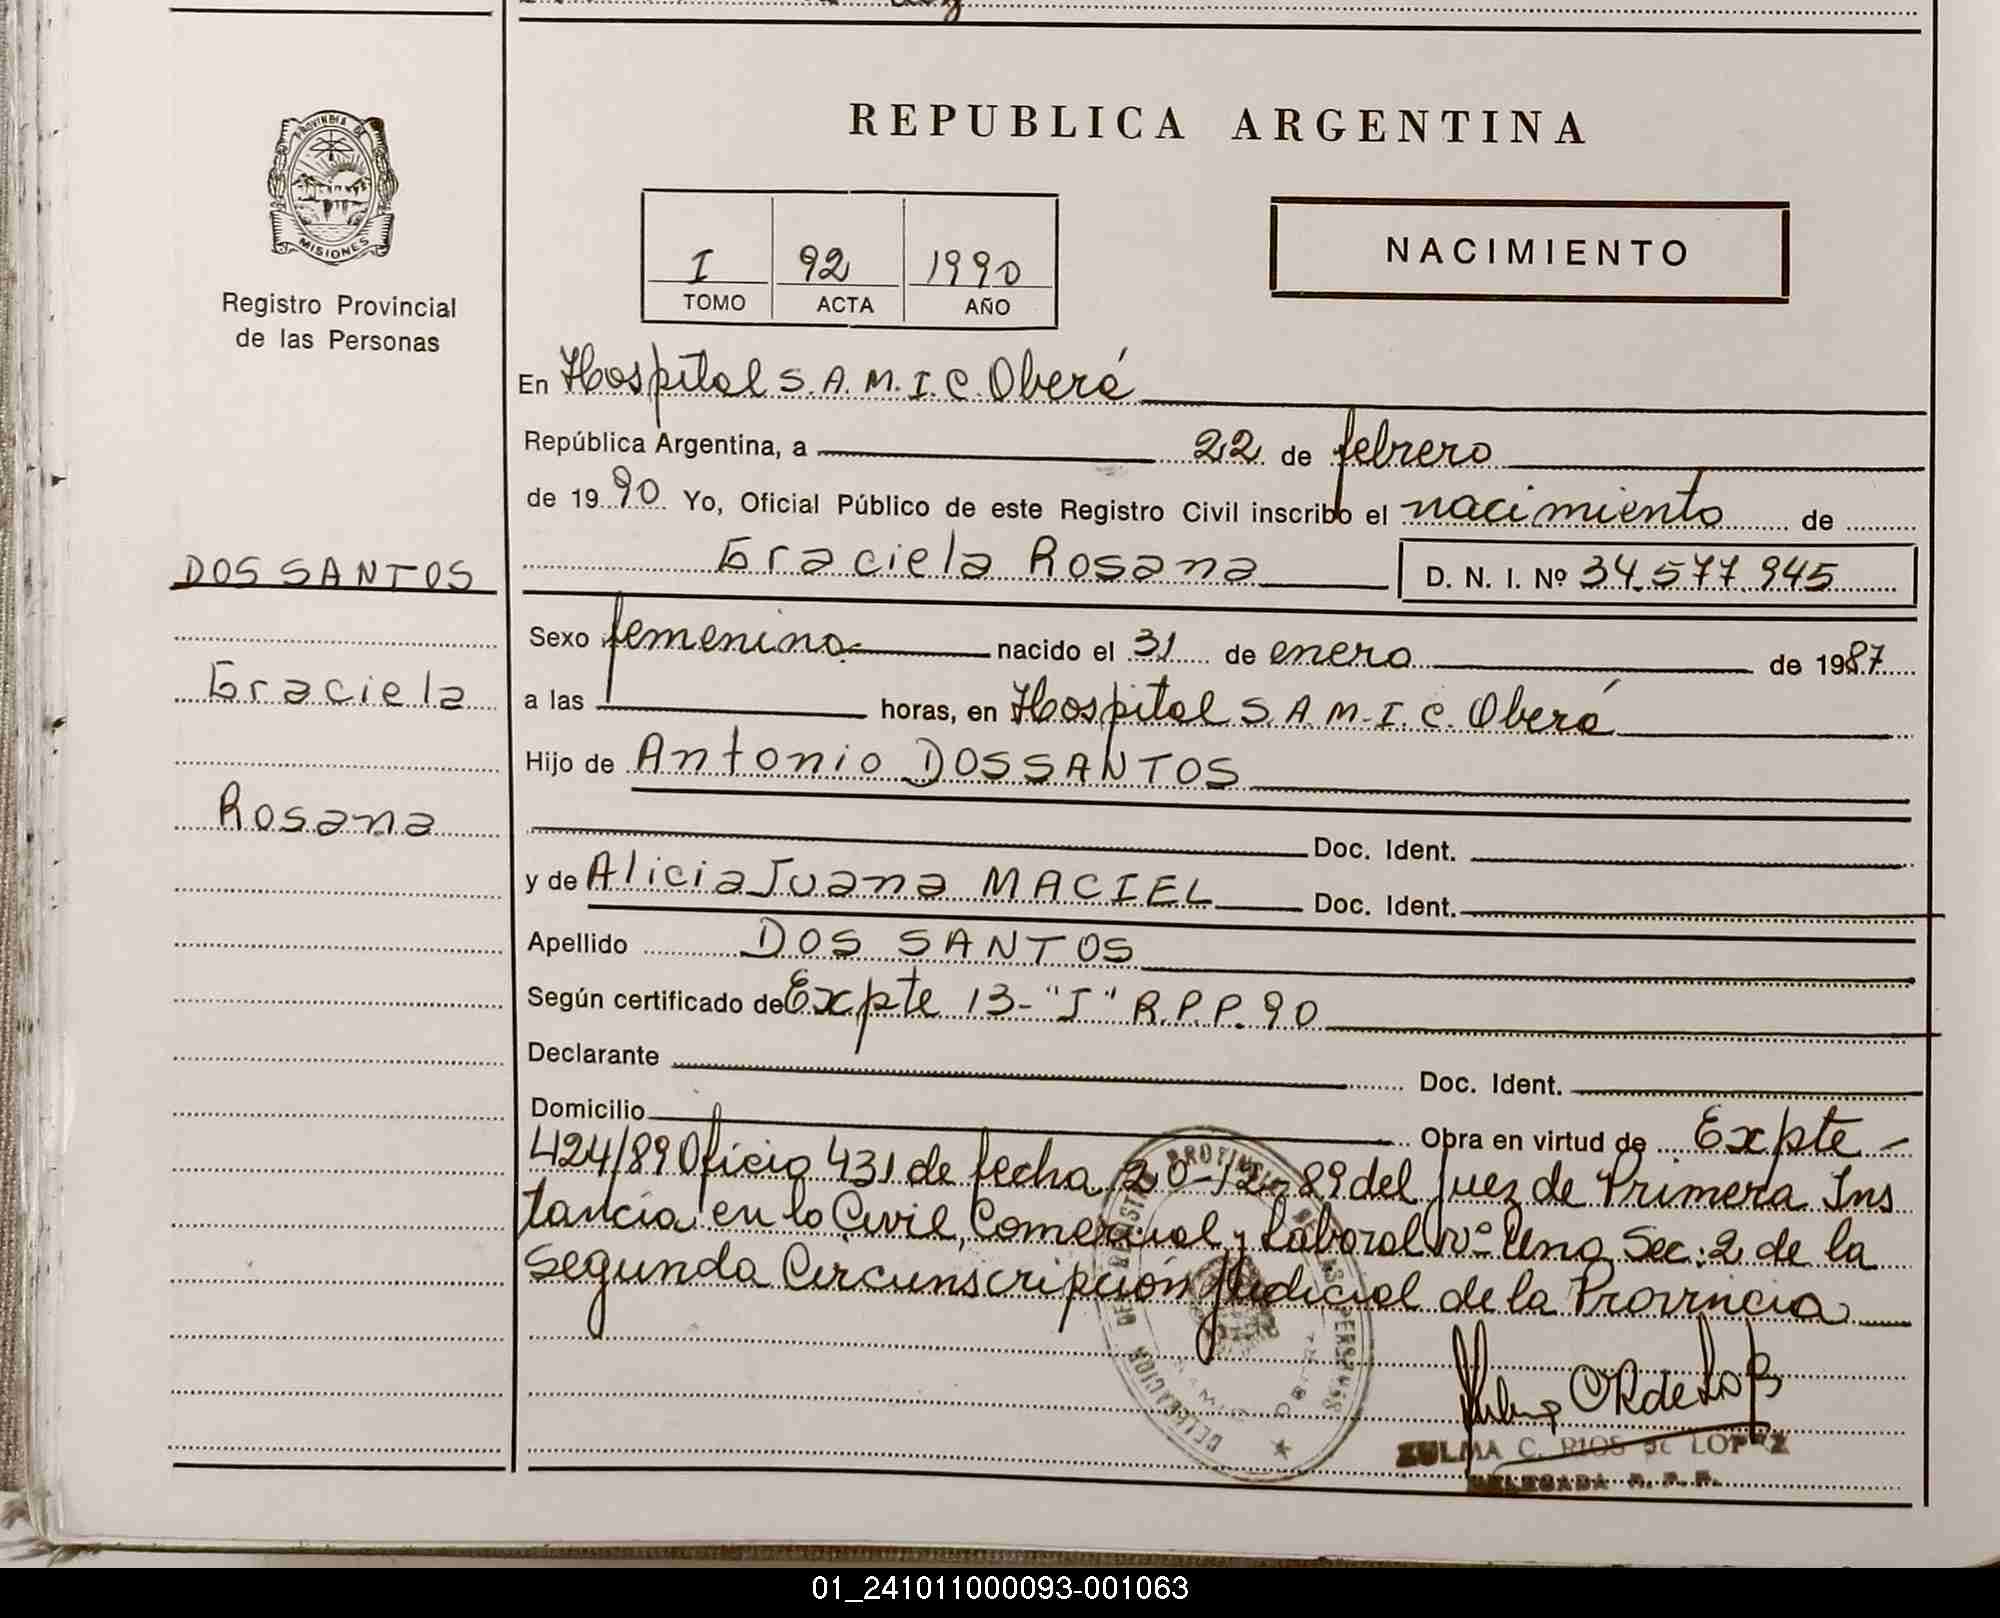 REPUBLICA ARGENTINA
PROVINCIA DE
MISIONES
Registro Provincial
de las Personas
I 92 1990
TOMO ACTA AÑO
NACIMIENTO
En Hospital S.A.M.I.C. Oberá
República Argentina, a 22 de febrero
de 1990 Yo, Oficial Público de este Registro Civil inscribo el nacimiento de
DOS SANTOS
Graciela Rosana D. N. I. Nº 34.577.945
Sexo femenino nacido el 31 de enero de 1987
Graciela
a las horas, en Hospital S.A.M.I.C. Oberá
Hijo de Antonio DOS SANTOS
Rosana
Doc. Ident.
y de Alicia Juana MACIEL Doc. Ident.
Apellido DOS SANTOS
Según certificado de Expte 13-"J" R.P.P. 90
Declarante Doc. Ident.
Domicilio Obra en virtud de Expte -
424/89 Oficio 431 de fecha 20-12-89 del Juez de Primera Ins
tancia en lo Civil, Comercial y Laboral Nº Uno Sec: 2 de la
Segunda Circunscripción Judicial de la Provincia
ZULMA C. RIOS de LOPEZ
DELEGADA R. P. P.
01_241011000093-001063